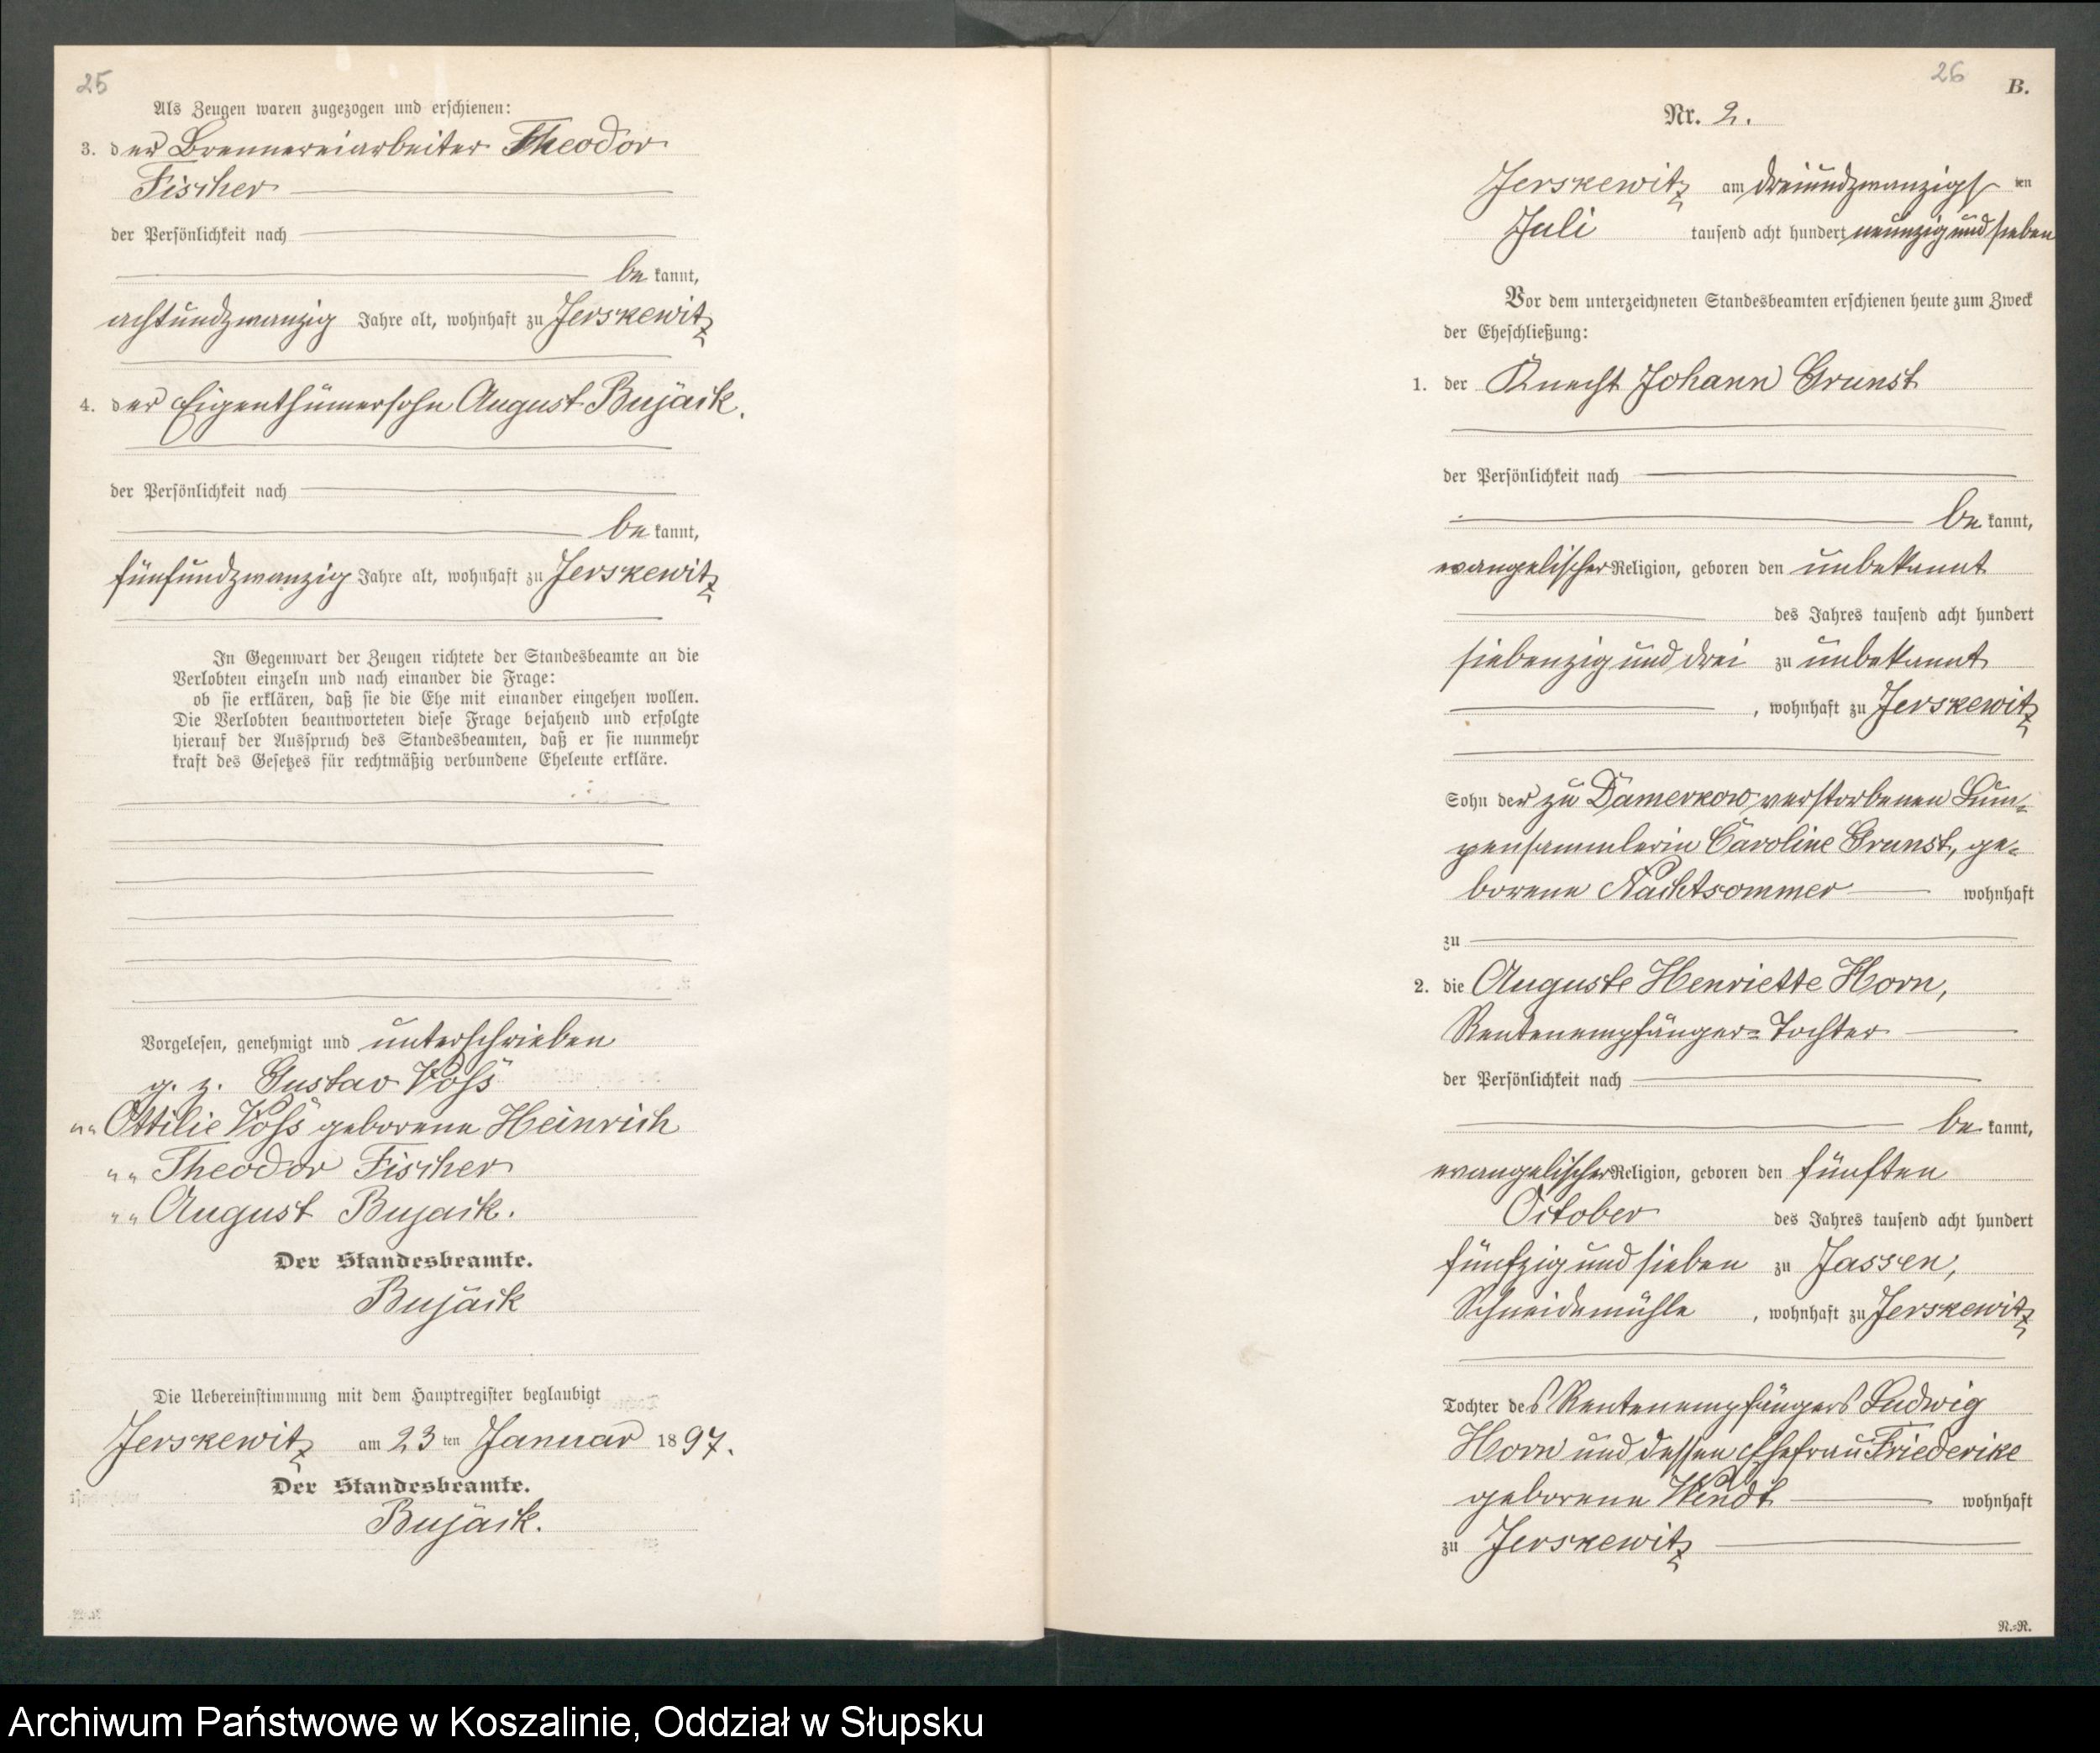 25
Als Zeugen waren zugezogen und erschienen:
3. der Brennereiarbeiter Theodor
Fischer
der Persönlichkeit nach
be kannt,
achtundzwanzig Jahre alt, wohnhaft zu Jerskewitz
4. der Eigenthümersohn August Bujäck.
der Persönlichkeit nach
be kannt,
fünfundzwanzig Jahre alt, wohnhaft zu Jerskewitz
In Gegenwart der Zeugen richtete der Standesbeamte an die
Verlobten einzeln und nach einander die Frage:
ob sie erklären, daß sie die Ehe mit einander eingehen wollen.
Die Verlobten beantworteten diese Frage bejahend und erfolgte
hierauf der Ausspruch des Standesbeamten, daß er sie nunmehr
kraft des Gesetzes für rechtmäßig verbundene Eheleute erkläre.
Vorgelesen, genehmigt und unterschrieben
g. z. Gustav Voß
"" Ottilie Voß geborene Heinrich
"" Theodor Fischer
"" August Bujack.
Der Standesbeamte.
Bujäck
Die Uebereinstimmung mit dem Hauptregister beglaubigt
Jerskewitz am 23 ten Januar 1897.
Der Standesbeamte.
Bujäck.
26
B.
Nr. 2.
Jerskewitz am dreiundzwanzigsten
Juli tausend acht hundert neunzig und sieben
Vor dem unterzeichneten Standesbeamten erschienen heute zum Zweck
der Eheschließung:
1. der Knecht Johann Grunst
der Persönlichkeit nach
be kannt,
evangelischer Religion, geboren den unbekannt
des Jahres tausend acht hundert
siebenzig und drei zu unbekannt
, wohnhaft zu Jerskewitz
Sohn der zu Damerkow verstorbenen Lum-
pensammlerin Caroline Grunst, ge-
borene Nachtsommer wohnhaft
zu
2. die Auguste Henriette Horn,
Rentenempfänger-Tochter
der Persönlichkeit nach
be kannt,
evangelischer Religion, geboren den fünften
October des Jahres tausend acht hundert
fünfzig und sieben zu Jassen,
Schneidemühle , wohnhaft zu Jerskewitz
Tochter des Rentenempfängers Ludwig
Horn und dessen Ehefrau Friederike
geborene Wendt wohnhaft
zu Jerskewitz
N.-N.
Archiwum Państwowe w Koszalinie, Oddział w Słupsku